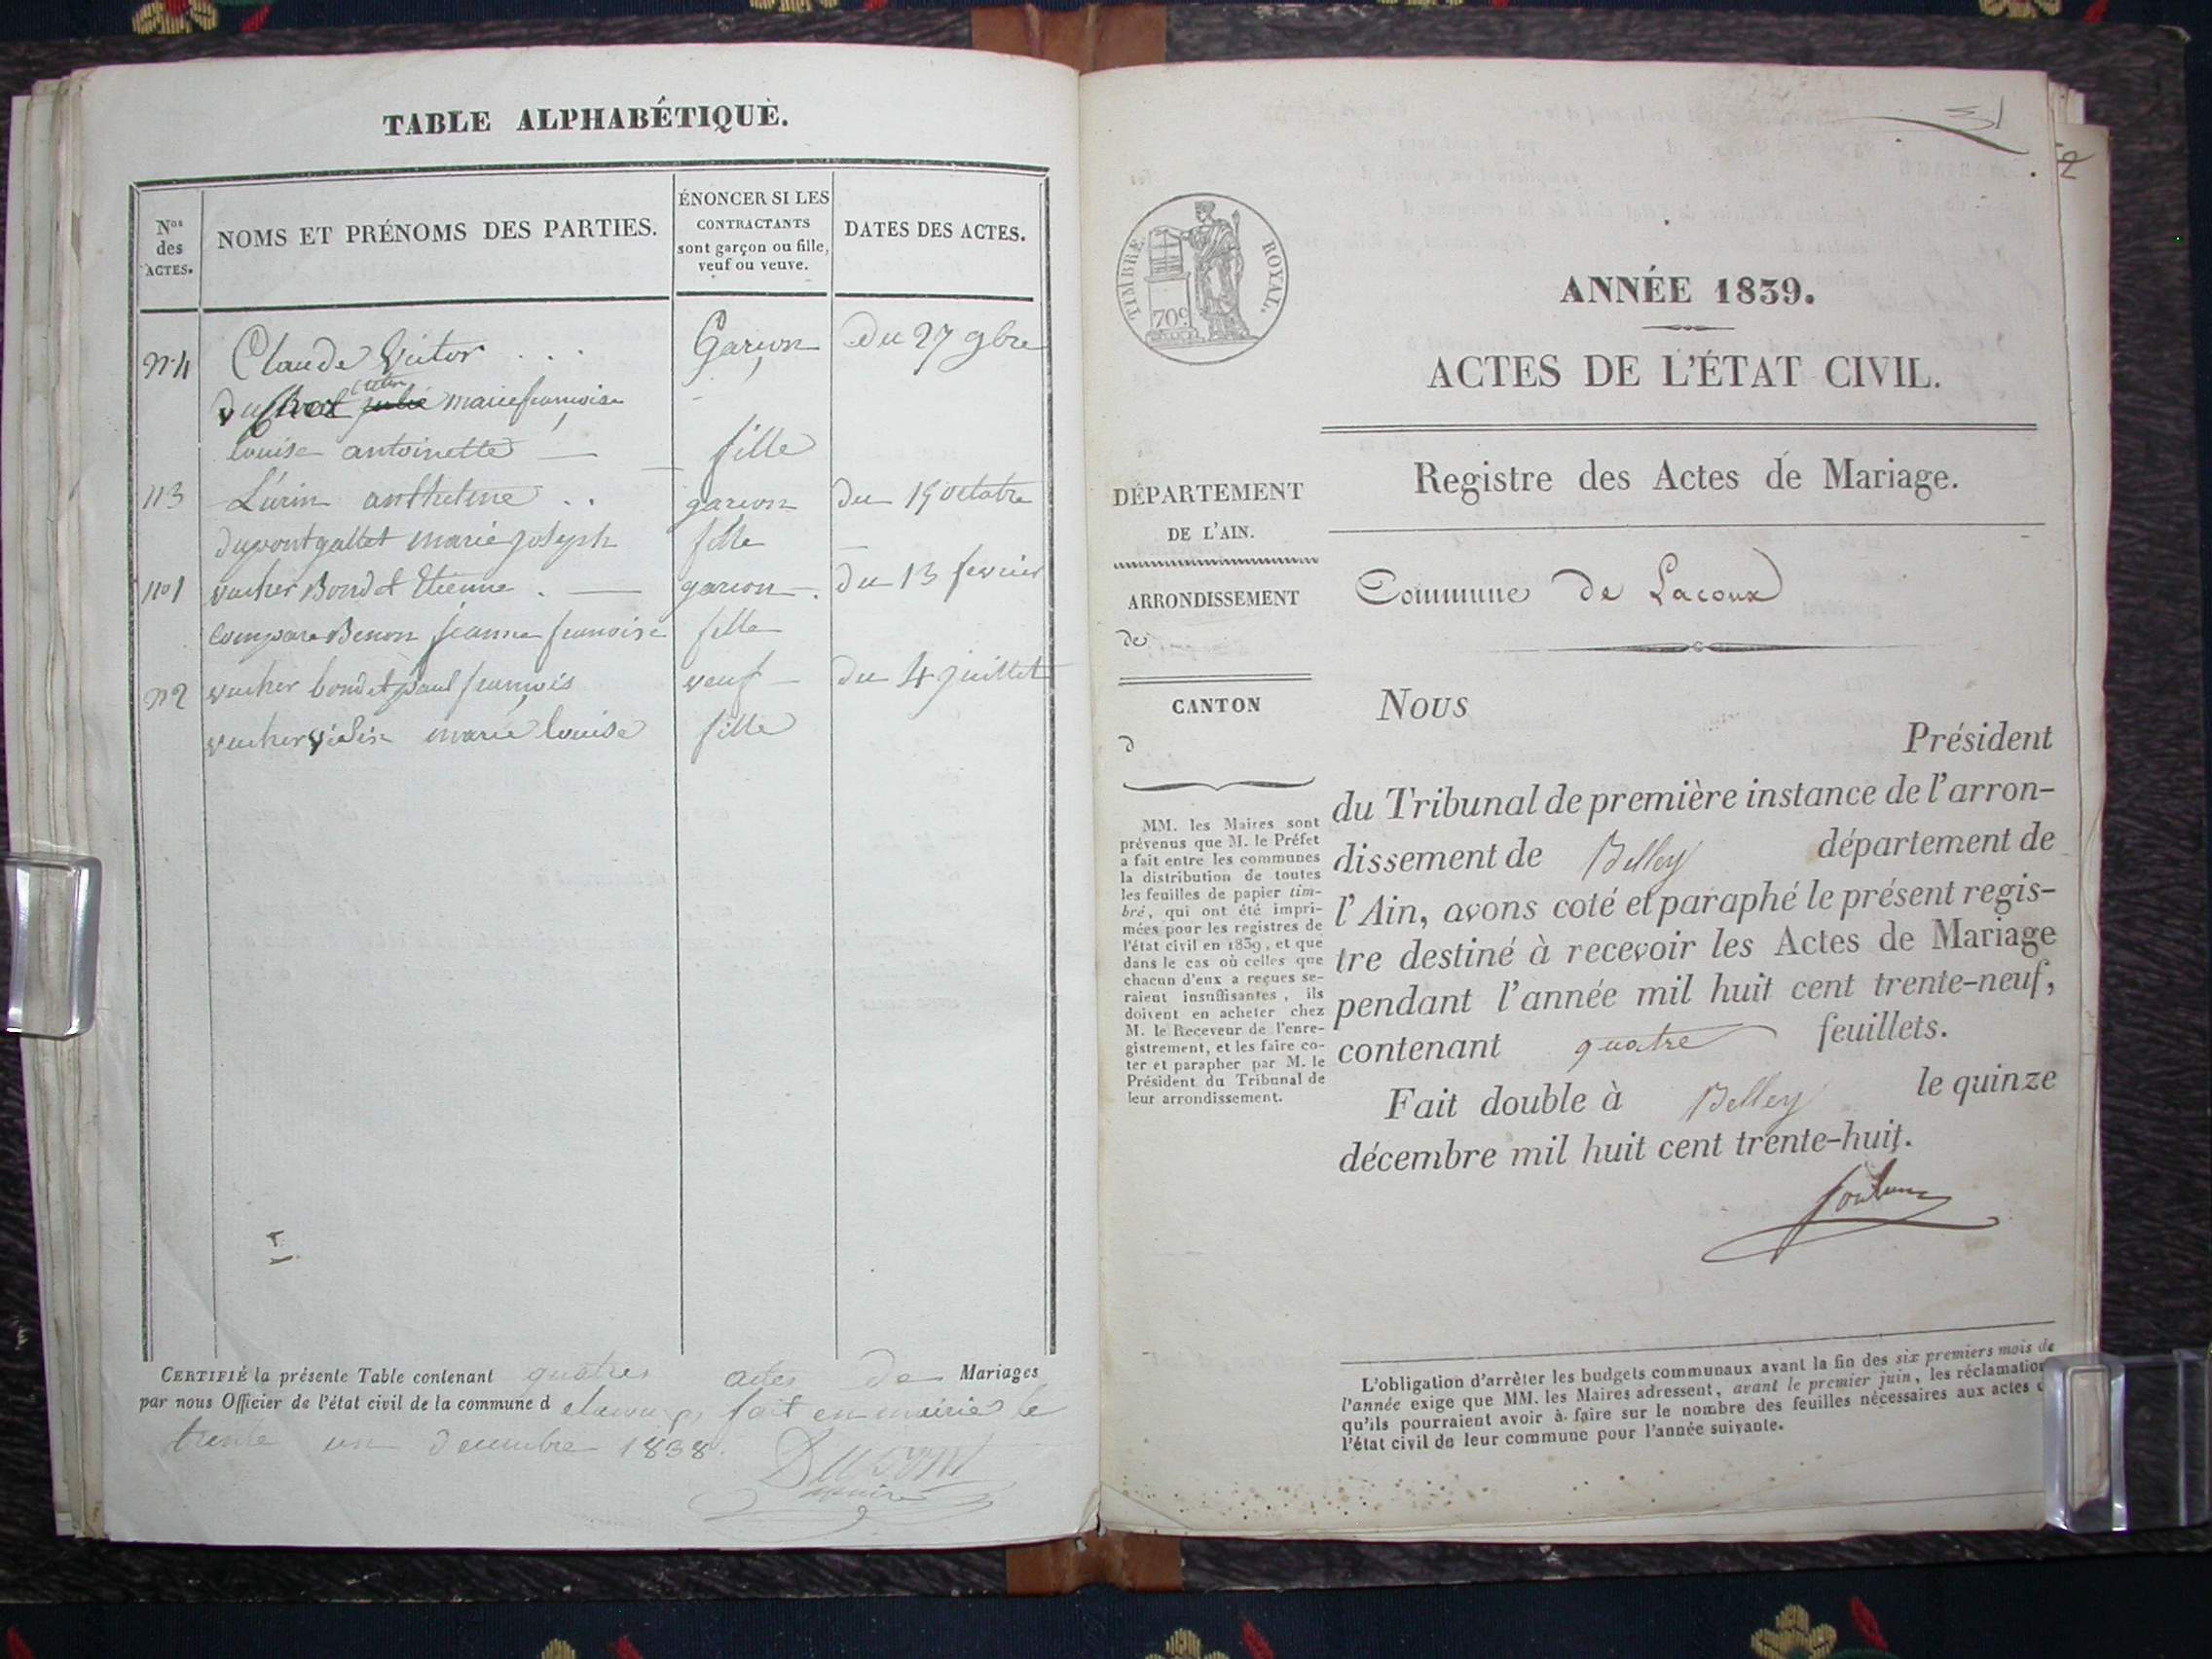 TABLE ALPHABÉTIQUE.
Nos des ACTES.
NOMS ET PRÉNOMS DES PARTIES.
ÉNONCER SI LES
CONTRACTANTS
sont garçon ou fille,
veuf ou veuve.
DATES DES ACTES.
n°4 Claude Victor . . . Garçon du 27 9bre
marie françoise
louise antoinette — fille
n°3 anthelme . . garcon du 15 octobre
dupont gallet marie joseph fille
n°1 vucher Bondet Etienne . — garcon — . du 13 fevrier
compare Benon jeanne francoise fille
n°2 vucher bondet paul françois veuf — du 4 juillet
vucher vialin marie louise fille
CERTIFIÉ la présente Table contenant quatres actes de Mariages
par nous Officier de l'état civil de la commune d elacoux fait en mairie le
trente un decembre 1838.
Dupont
maire
31
2
TIMBRE ROYAL.
70c
ANNÉE 1839.
ACTES DE L'ÉTAT CIVIL.
Registre des Actes de Mariage.
DÉPARTEMENT
DE L'AIN.
ARRONDISSEMENT
de
CANTON
d
Commune de Lacoux
MM. les Maires sont
prévenus que M. le Préfet
a fait entre les communes
la distribution de toutes
les feuilles de papier tim-
bré, qui ont été impri-
mées pour les registres de
l'état civil en 1839, et que
dans le cas où celles que
chacun d'eux a reçues se-
raient insuffisantes, ils
doivent en acheter chez
M. le Receveur de l'enre-
gistrement, et les faire co-
ter et parapher par M. le
Président du Tribunal de
leur arrondissement.
Nous
Président
du Tribunal de première instance de l'arron-
dissement de Belley département de
l'Ain, avons coté et paraphé le présent regis-
tre destiné à recevoir les Actes de Mariage
pendant l'année mil huit cent trente-neuf,
contenant quatre feuillets.
Fait double à Belley le quinze
décembre mil huit cent trente-huit.
L'obligation d'arrêter les budgets communaux avant la fin des six premiers mois de
l'année exige que MM. les Maires adressent, avant le premier juin, les réclamation
qu'ils pourraient avoir à faire sur le nombre des feuilles nécessaires aux actes d
l'état civil de leur commune pour l'année suivante.